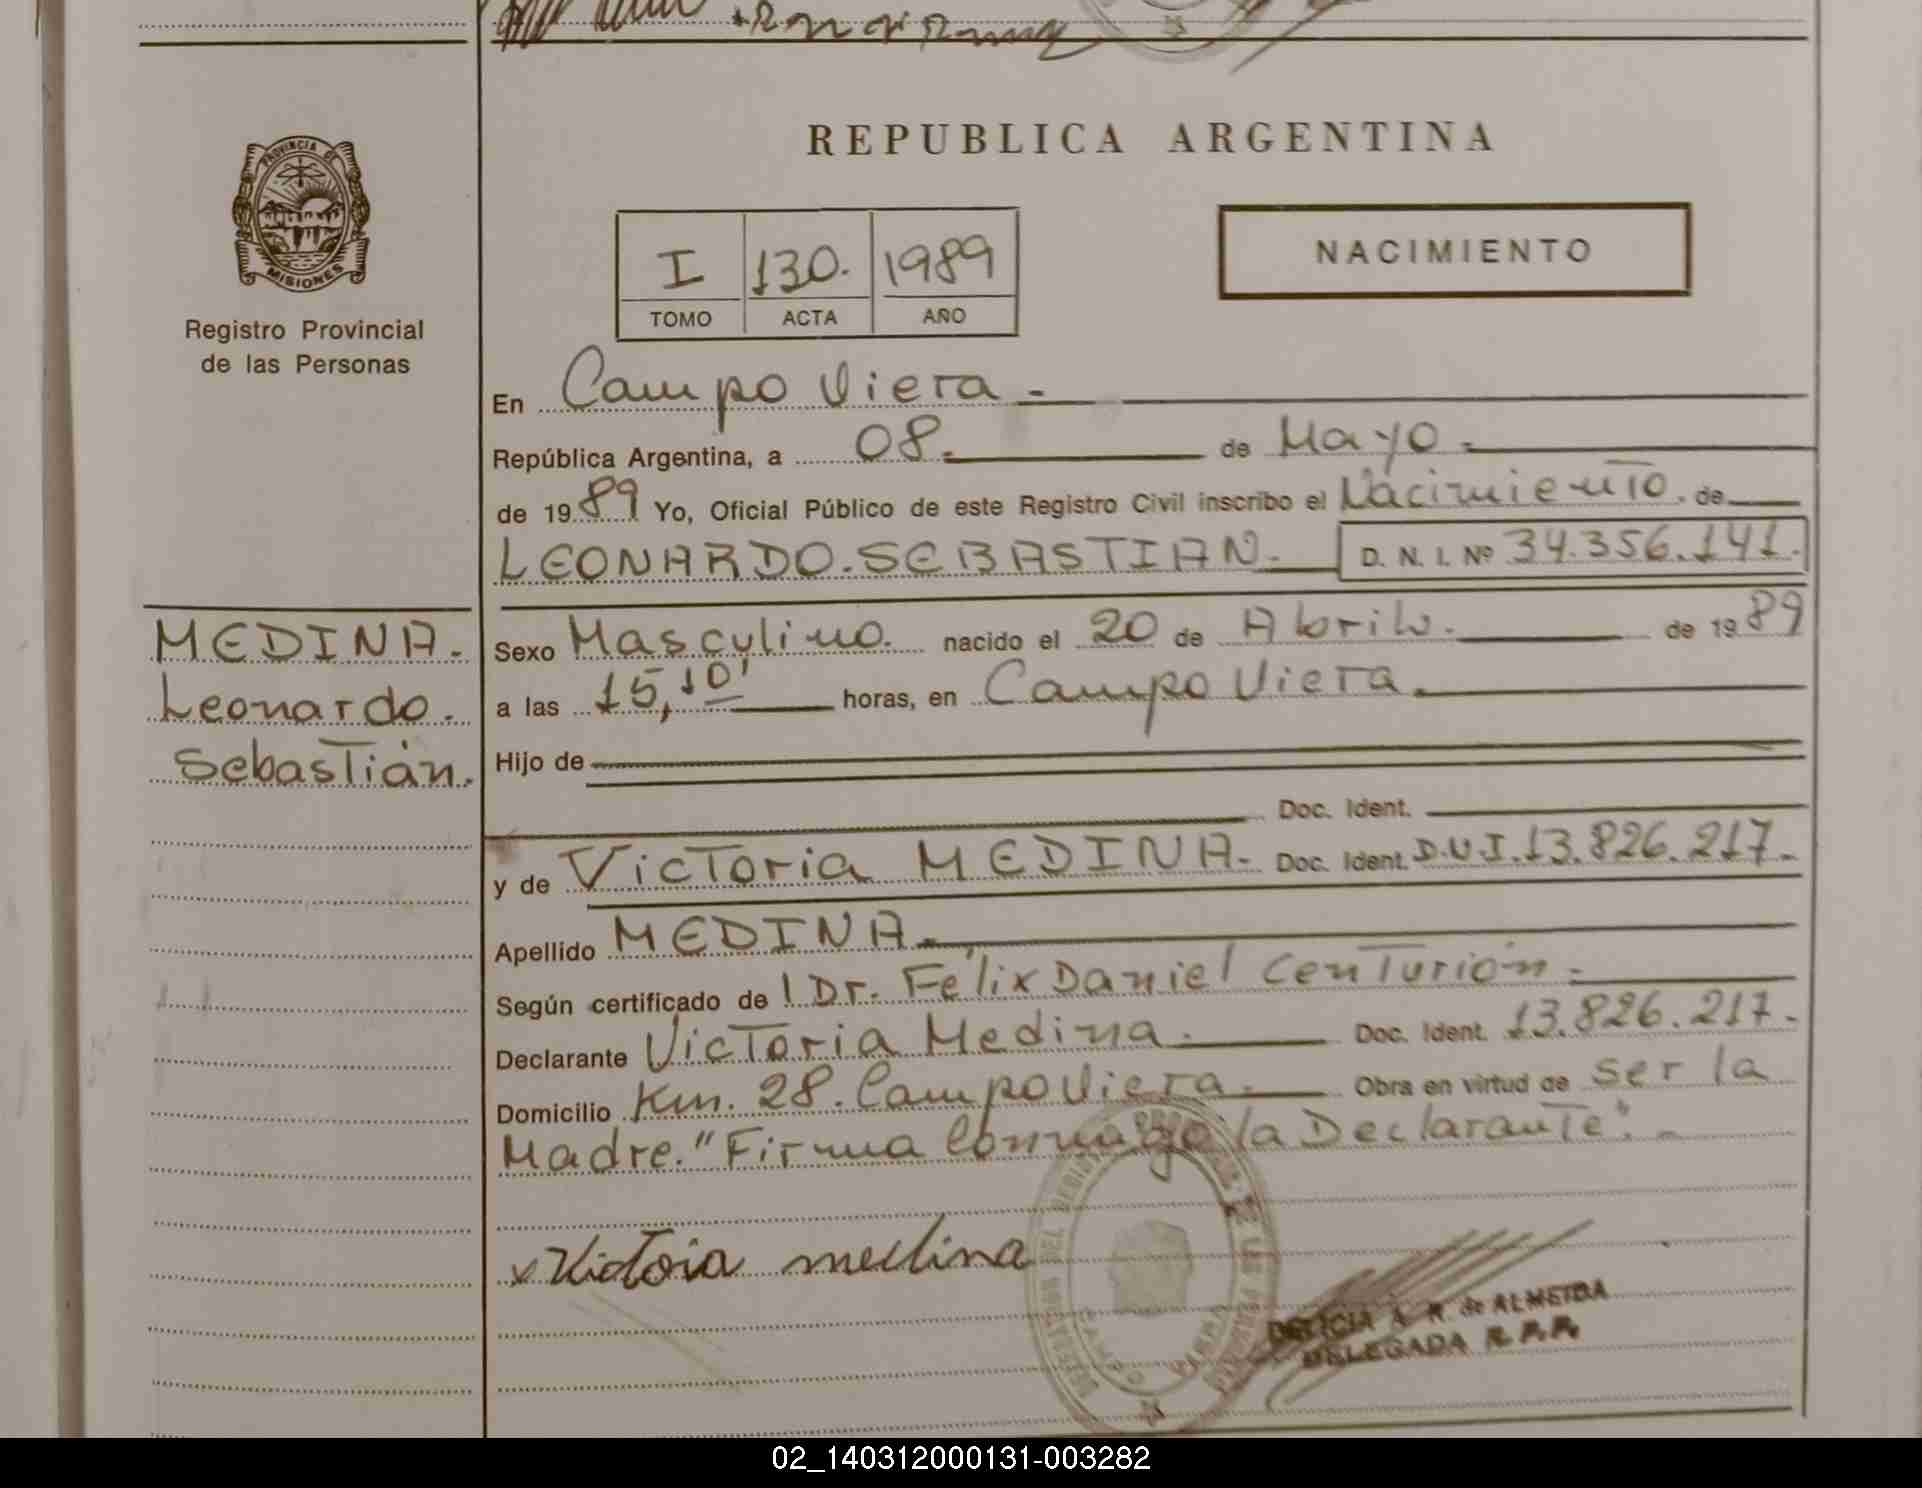 REPUBLICA ARGENTINA
PROVINCIA DE
MISIONES
Registro Provincial
de las Personas
I 130. 1989
TOMO ACTA AÑO
NACIMIENTO
En Campo Viera -
República Argentina, a 08. de Mayo
de 1989 Yo, Oficial Público de este Registro Civil inscribo el Nacimiento. de
LEONARDO. SEBASTIAN. D. N. I. Nº 34.356.141.
MEDINA.
Leonardo.
Sebastián.
Sexo Masculino. nacido el 20 de Abril. de 1989
a las 15,10' horas, en Campo Viera.
Hijo de
Doc. Ident.
y de Victoria MEDINA. Doc. Ident. D.N.I. 13.826.217.
Apellido MEDINA.
Según certificado de Dr. Félix Daniel Centurión.
Declarante Victoria Medina. Doc. Ident. 13.826.217.
Domicilio Km. 28. Campo Viera. Obra en virtud de ser la
Madre. "Firma Conmigo la Declarante". -
x Victoia medina
DELICIA A. R. de ALMEIDA
DELEGADA R. P. P.
02_140312000131-003282